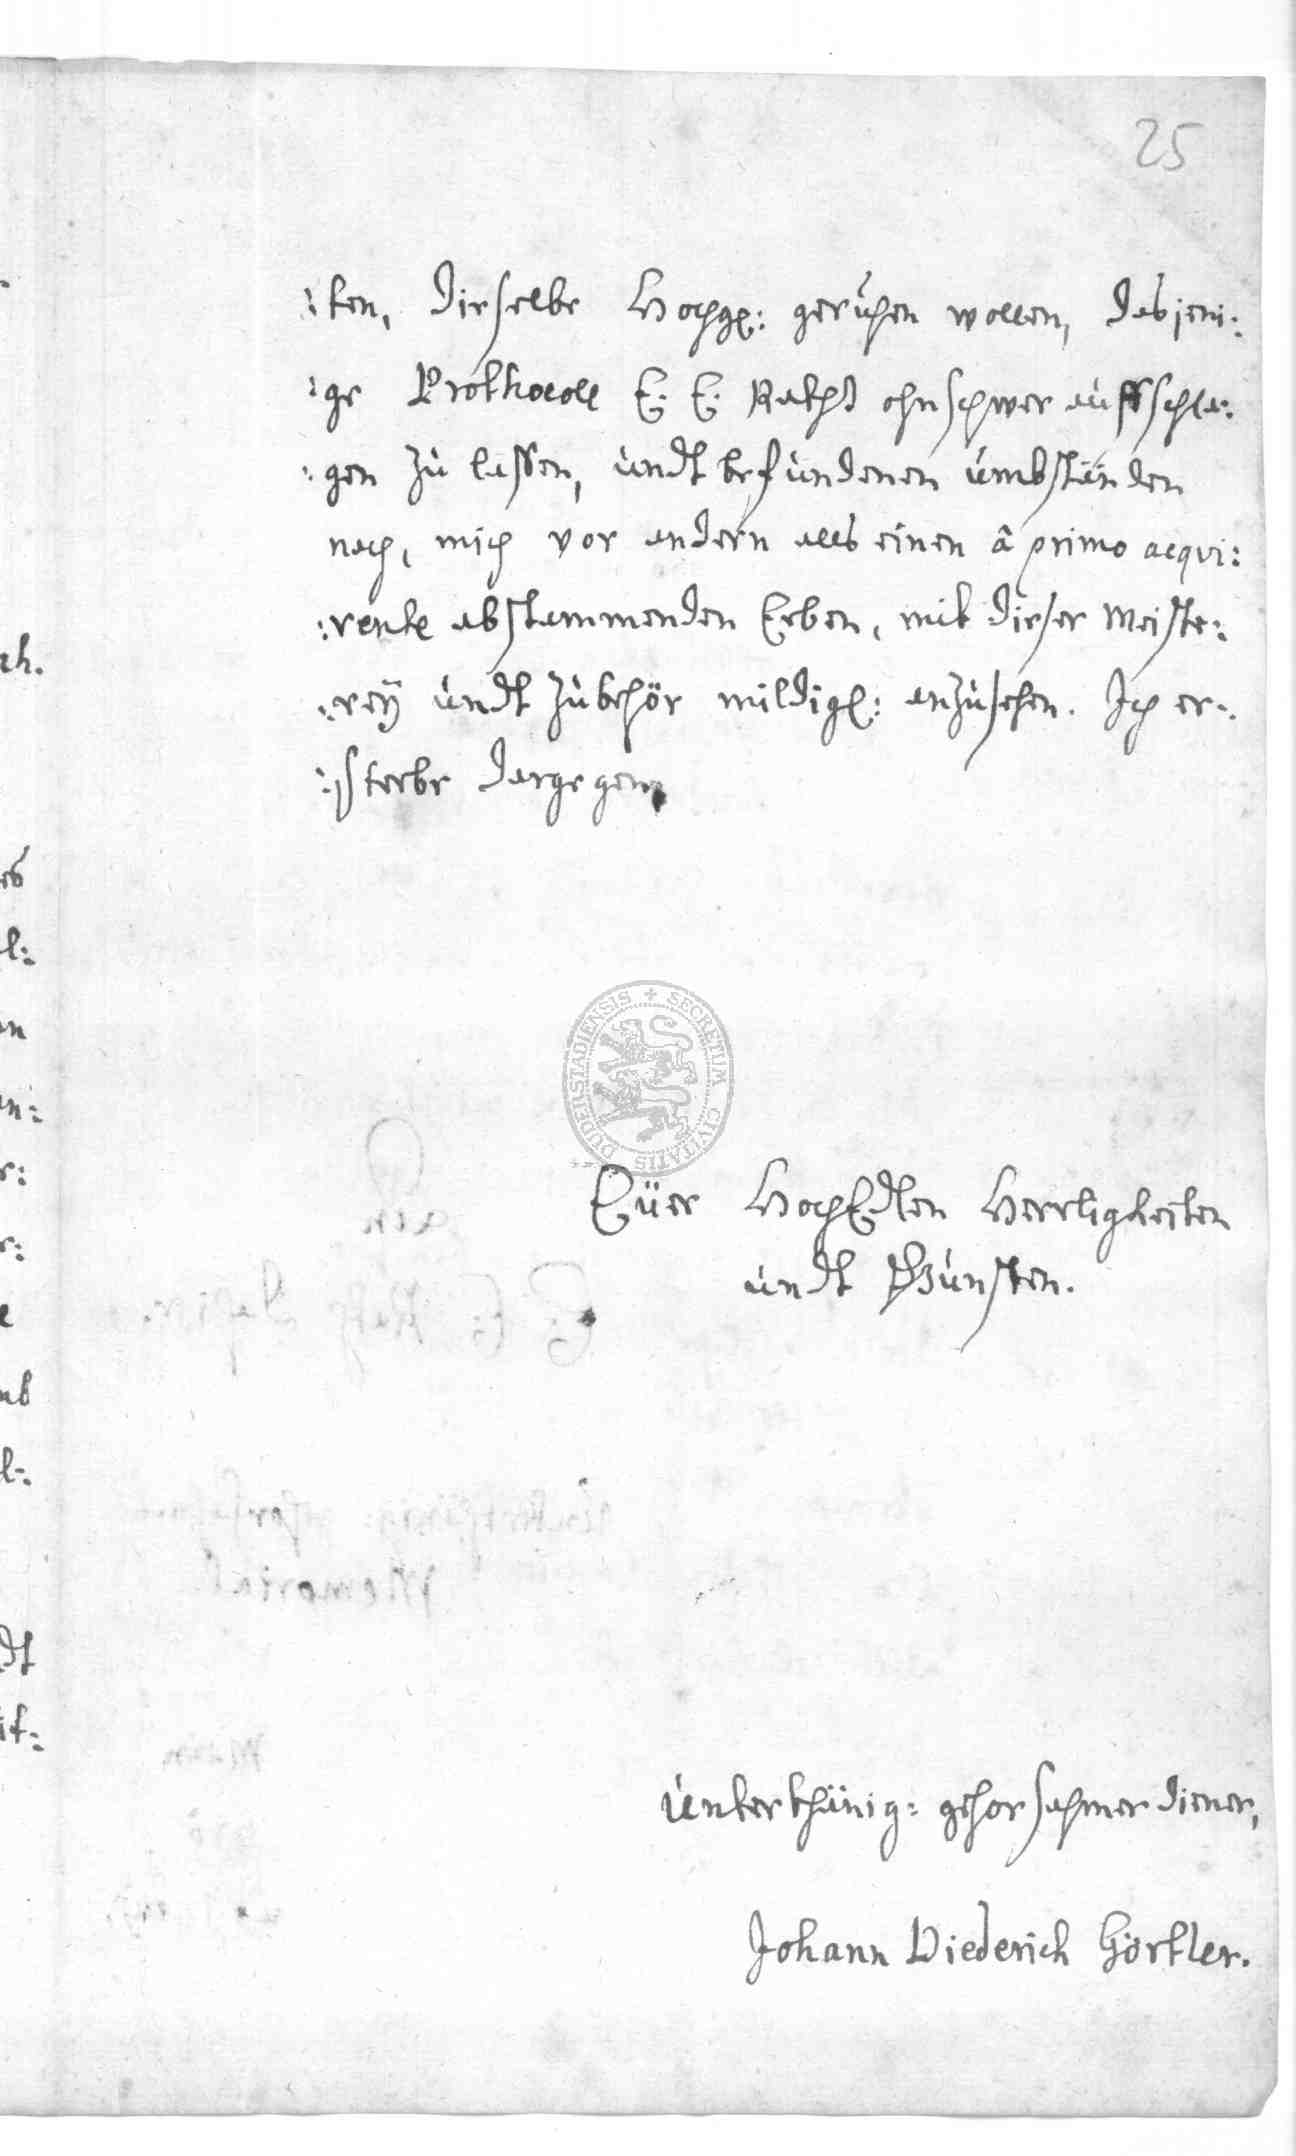 25
:ten, dieselbe Hochgl: geruhen wollen, dasjeni:
:ge Prothocoll E. E. Raths ohnschwer auffschla:
:gen zu lassen, undt befundenen umbständen
nach, mich vor andern alls einen â primo acqui:
:rente abstammenden Erben, mit dieser Meiste:
:reÿ undt Zubehör mildigl: anzusehen. Ich er:
:sterbe dargegen
DUDERSTADIENSIS + SECRETUM CIVITATIS
Euer HochEdlen Herrligkeiten
undt Gunsten.
Unterthänig: gehorsahmer diener,
Johann Diederich Görtler.